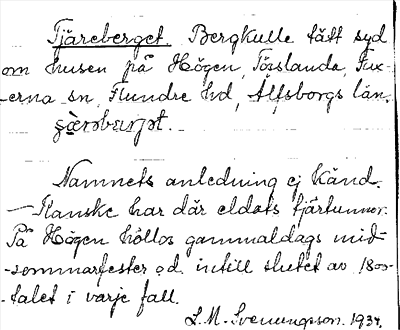 Tjäreberget. Bergkulle tätt syd
om husen på Högen, Torslanda, Fux-
-erna sn, Flundre hd, Älfsborgs län.
Namnets anledning ej känd.
— Kanske har där eldats tjärtunnor.
På Högen höllos gammaldags mid-
-sommarfester o.d. intill slutet av 1800-
-talet i varje fall.
L.M. Svenungsson. 1934.